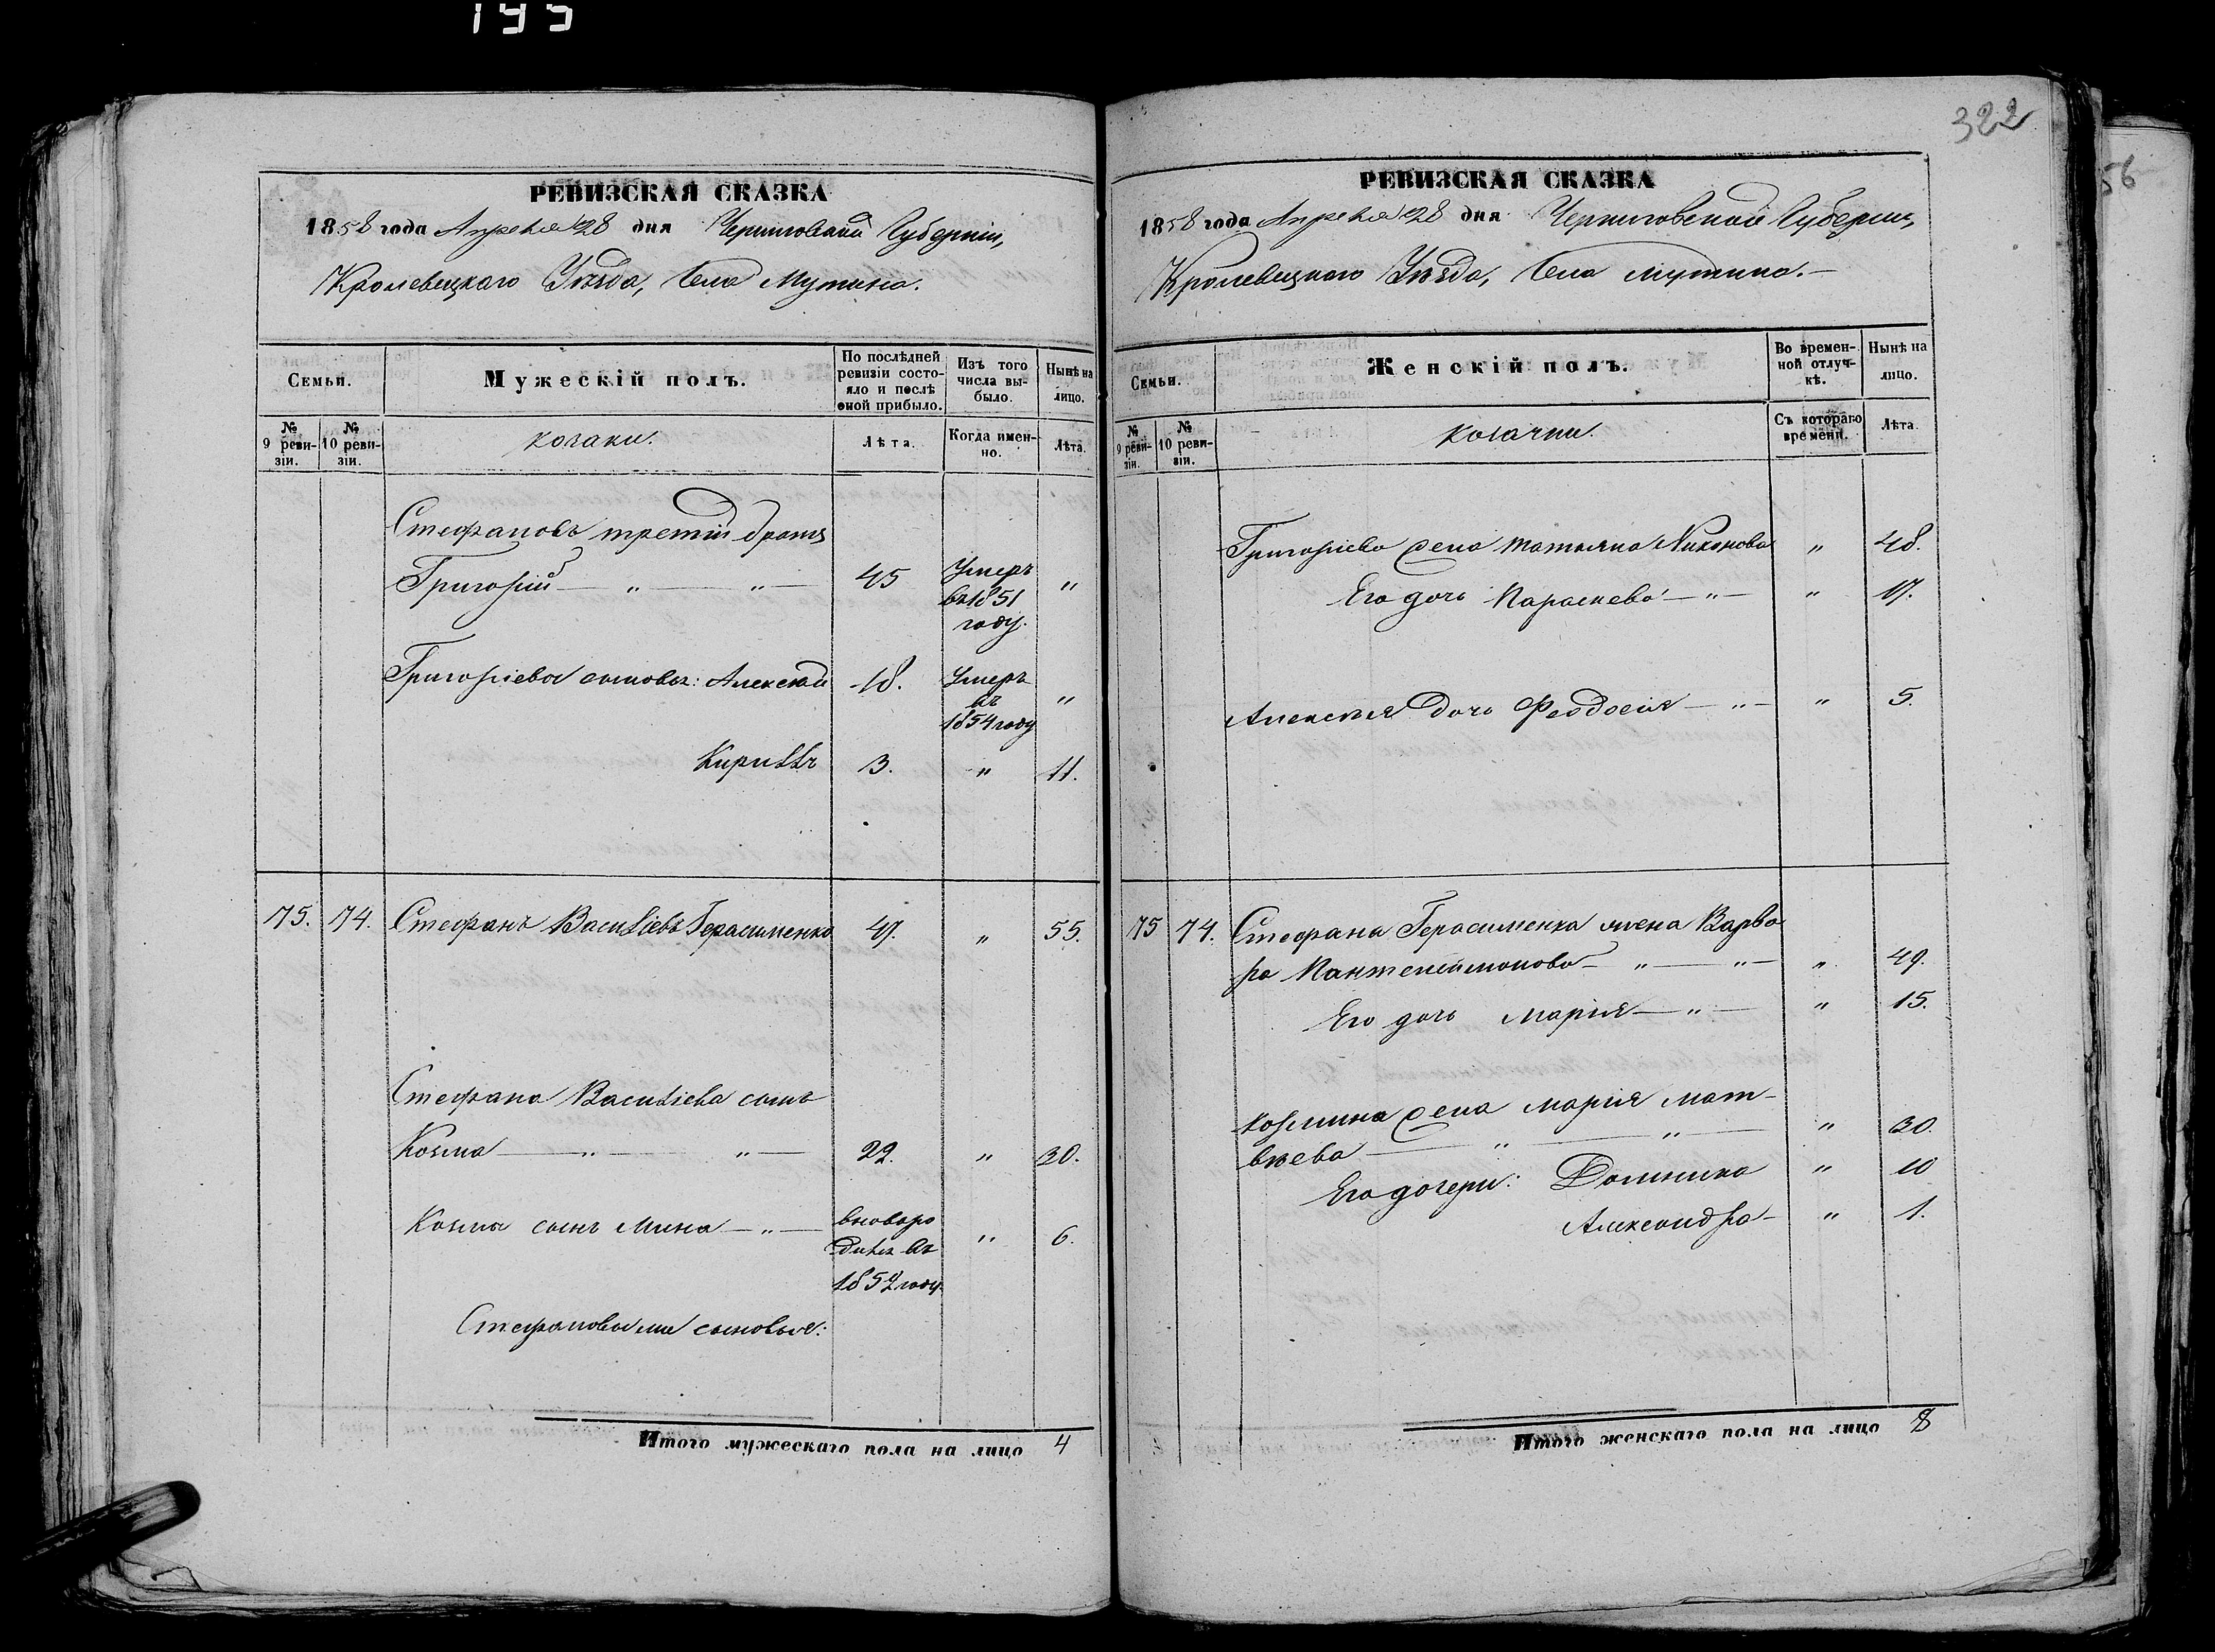 195
РЕВИЗСКАЯ СКАЗКА
1858 года Апреля 28 дня Черниговской Губерніи,
Кролевецкаго Уѣзда, Села Мутина.
Семьи.
Мужескій полъ.
По послѣдней ревизіи состояло и послѣ оной прибыло.
Изъ того числа выбыло.
Нынѣ на лицо.
№ 9 ревизіи.
№ 10 ревизіи.
козаки.
Лѣта.
Когда именно.
Лѣта.
Стефановъ третій братъ
Григорій — „ — „ — 45 Умеръ въ 1851 году. „
Григоріевы сыновья: Алексѣй 18. Умеръ въ 1854 году „
Кириллъ 3. „ 11.
75. 74. Стефанъ Васильевъ Герасименко 47. „ 55.
Стефана Васильева сынъ
Козма — „ — „ — 22. „ 30.
Козмы сынъ Мина — „ — вновь родился въ 1852 году. „ 6.
Стефановы же сыновья:
Итого мужескаго пола на лицо 4
322
56
РЕВИЗСКАЯ СКАЗКА
1858 года Апреля 28 дня Черниговской Губерніи,
Кролевецкаго Уѣзда, Села Мутина. —
Семьи.
Женскій полъ.
Во временной отлучкѣ.
Нынѣ на лицо.
№ 9 ревизіи.
№ 10 ревизіи.
козачки.
Съ котораго времени.
Лѣта.
Григоріева жена Татьяна Никонова „ 48.
Его дочь Параскева — „ — „ 17.
Алексѣя дочь Феодосія — „ — „ 5.
75 74. Стефана Герасименка жена Варва-
ра Пантелеймонова — „ — „ — „ 49.
Его дочь Марія — „ — „ 15.
Козмина жена Марія Мат-
вѣева — „ — „ — „ 30.
Его дочери: Домника „ 10
Александра — „ 1.
Итого женскаго пола на лицо 8